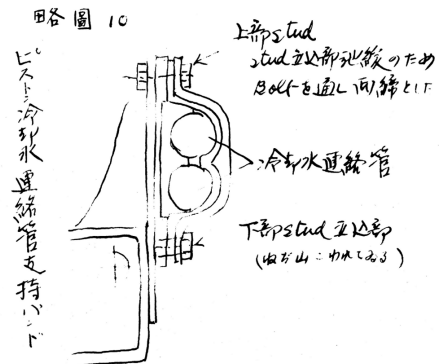 略圖 10
ピストン冷却水連絡管支持バンド
上部stud
stud立込部弛緩のため
Boltを通し両締とした
冷却水連絡管
下部stud立込部
(ねぢ山こわれてゐる)